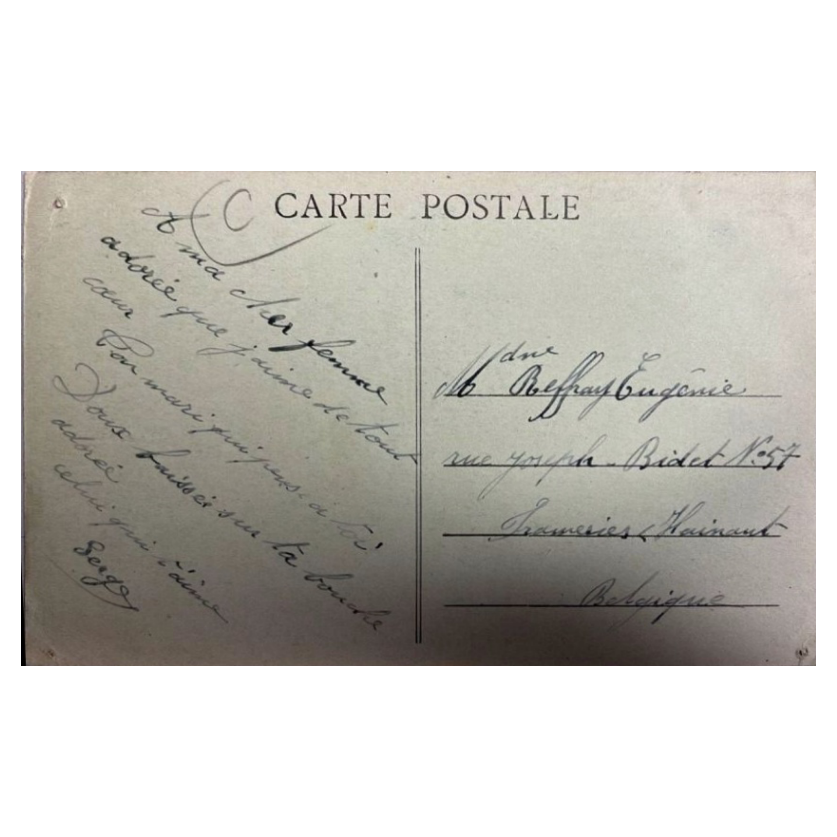 C
CARTE POSTALE
A ma cher femme
adorée que j'aime de tout
cœur
Ton mari qui pens à toi
Doux baisser sur ta bouche
adorée
celui qui t'aime
Serge
Mdme Eugénie
rue Joseph - Bidet No 57
Frameries Hainaut
Belgique